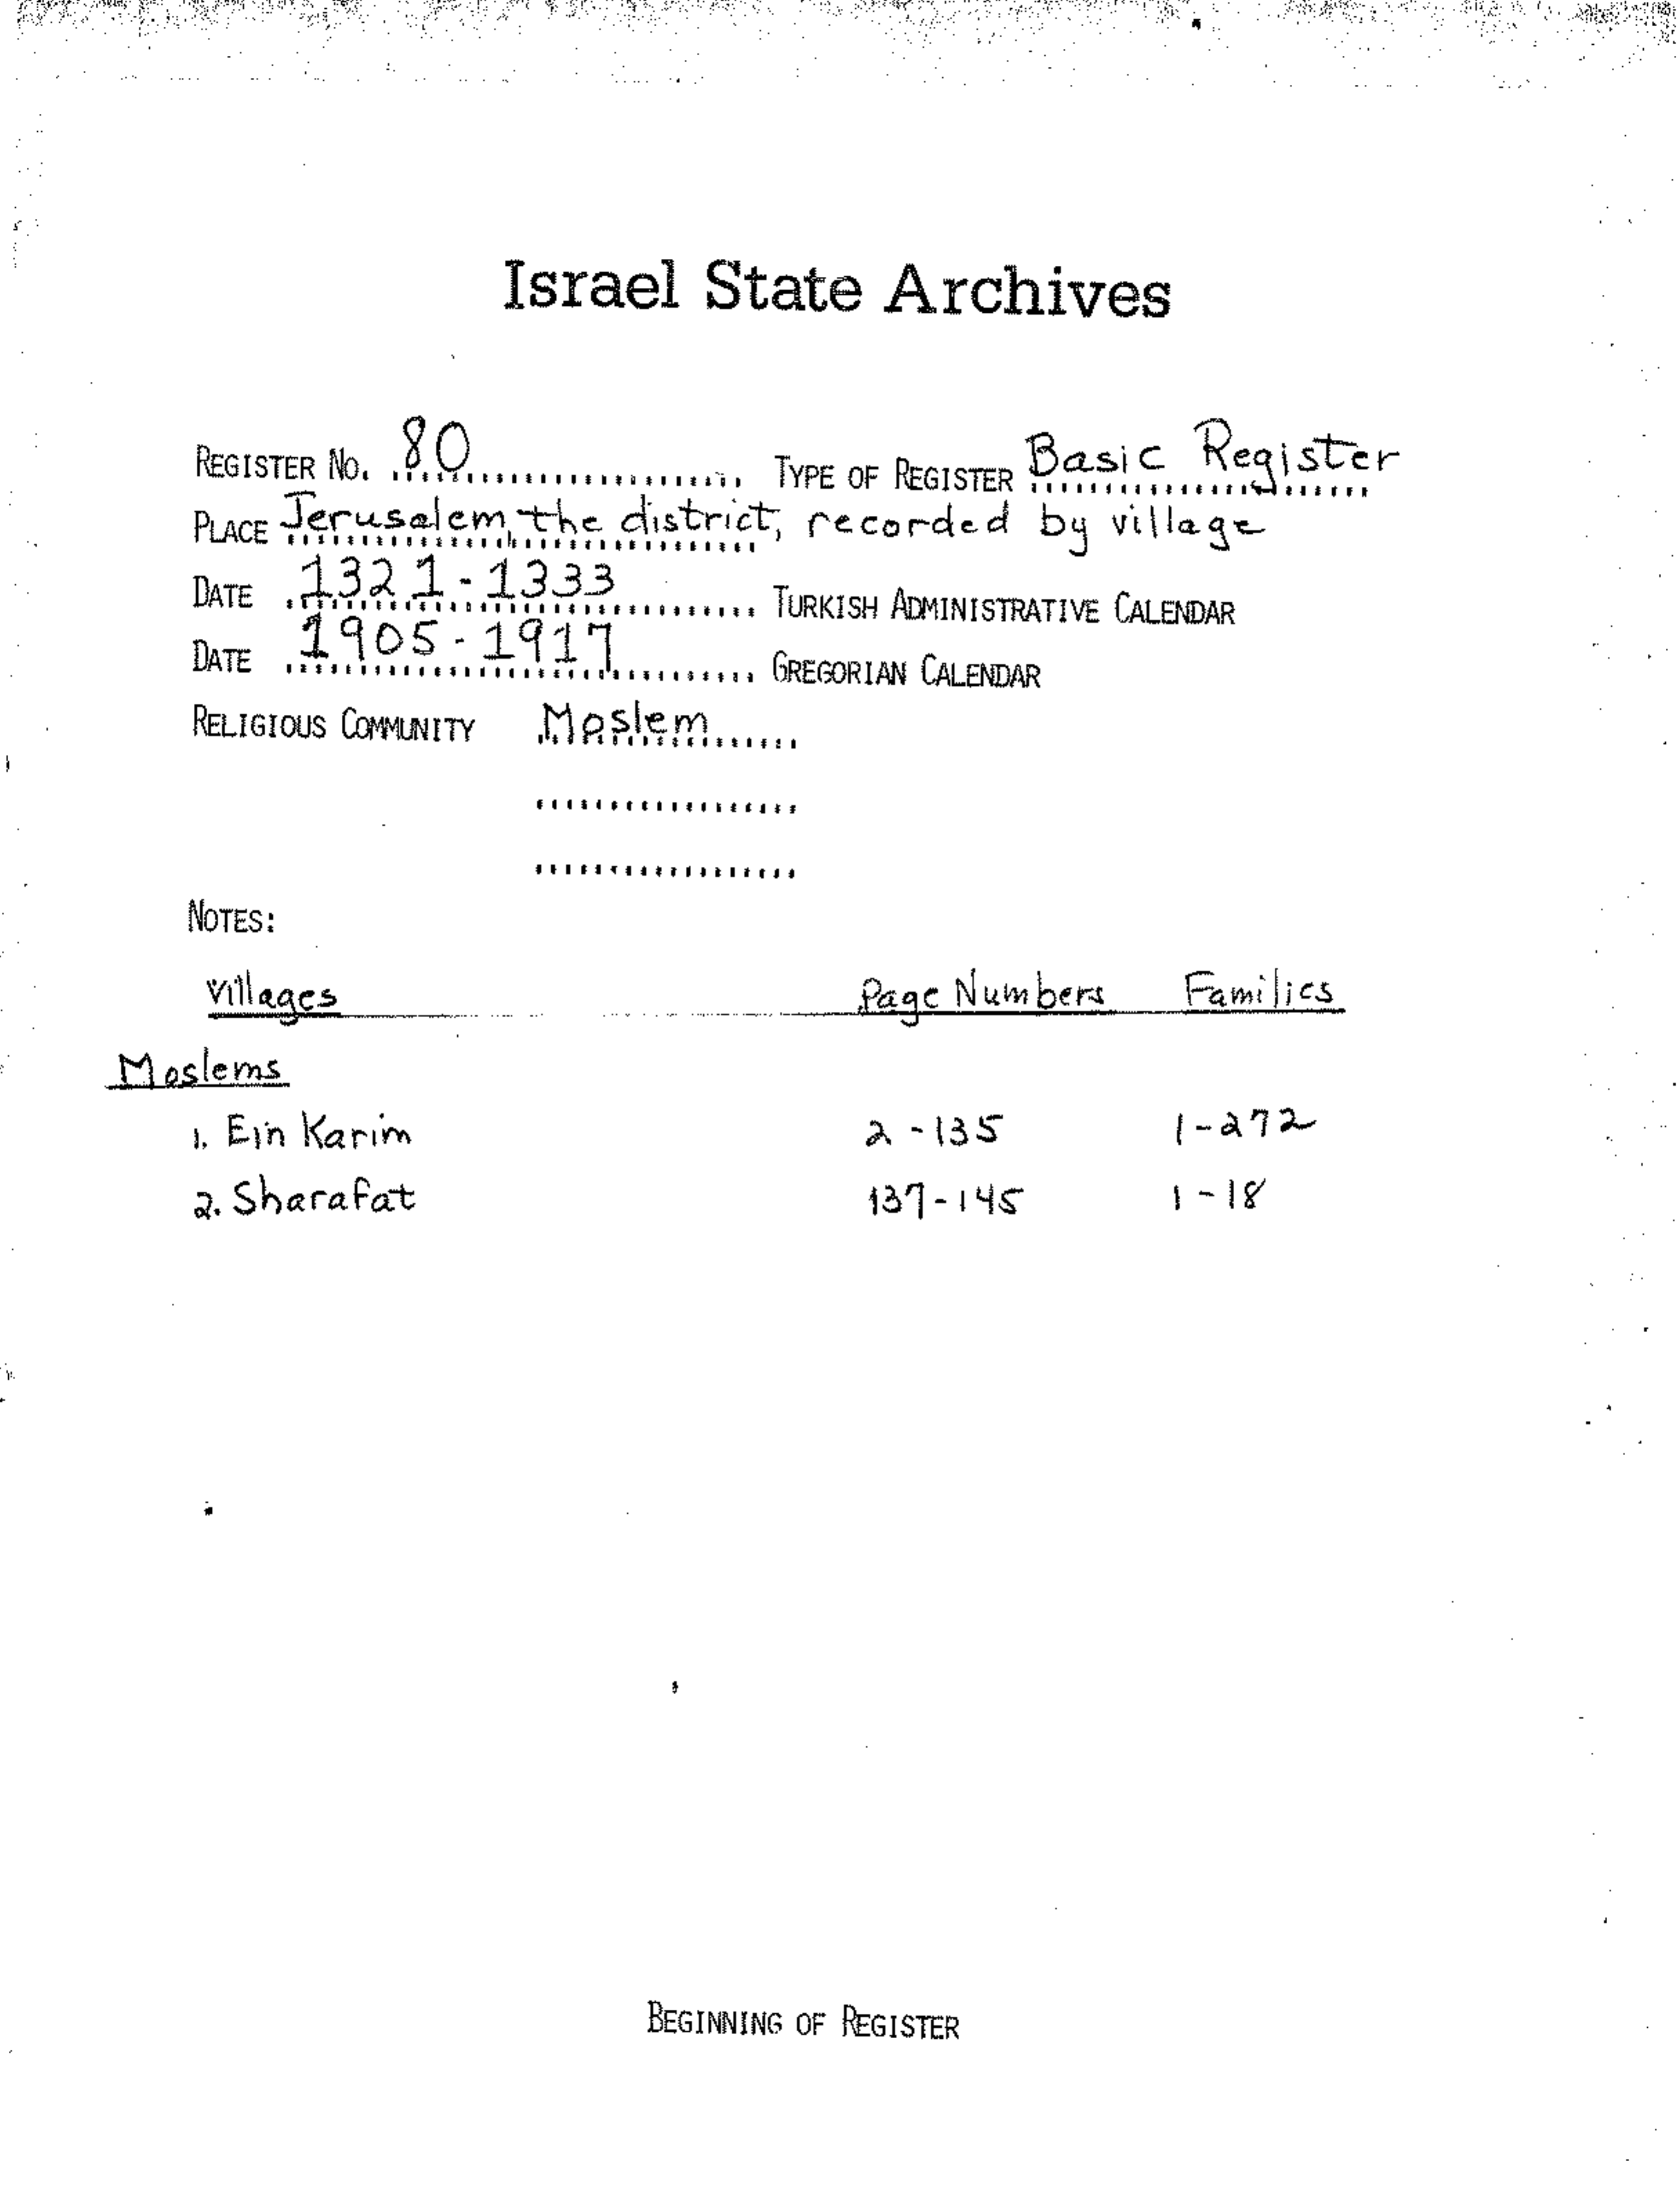 Israel State Archives
REGISTER NO. 80 TYPE OF REGISTER Basic Register
PLACE Jerusalem, the district, recorded by village
DATE 1321-1333 TURKISH ADMINISTRATIVE CALENDAR
DATE 1905-1917 GREGORIAN CALENDAR
RELIGIOUS COMMUNITY Moslem
NOTES:
Villages Page Numbers Families
Moslems
1. Ein Karim 2-135 1-272
2. Sharafat 137-145 1-18
BEGINNING OF REGISTER